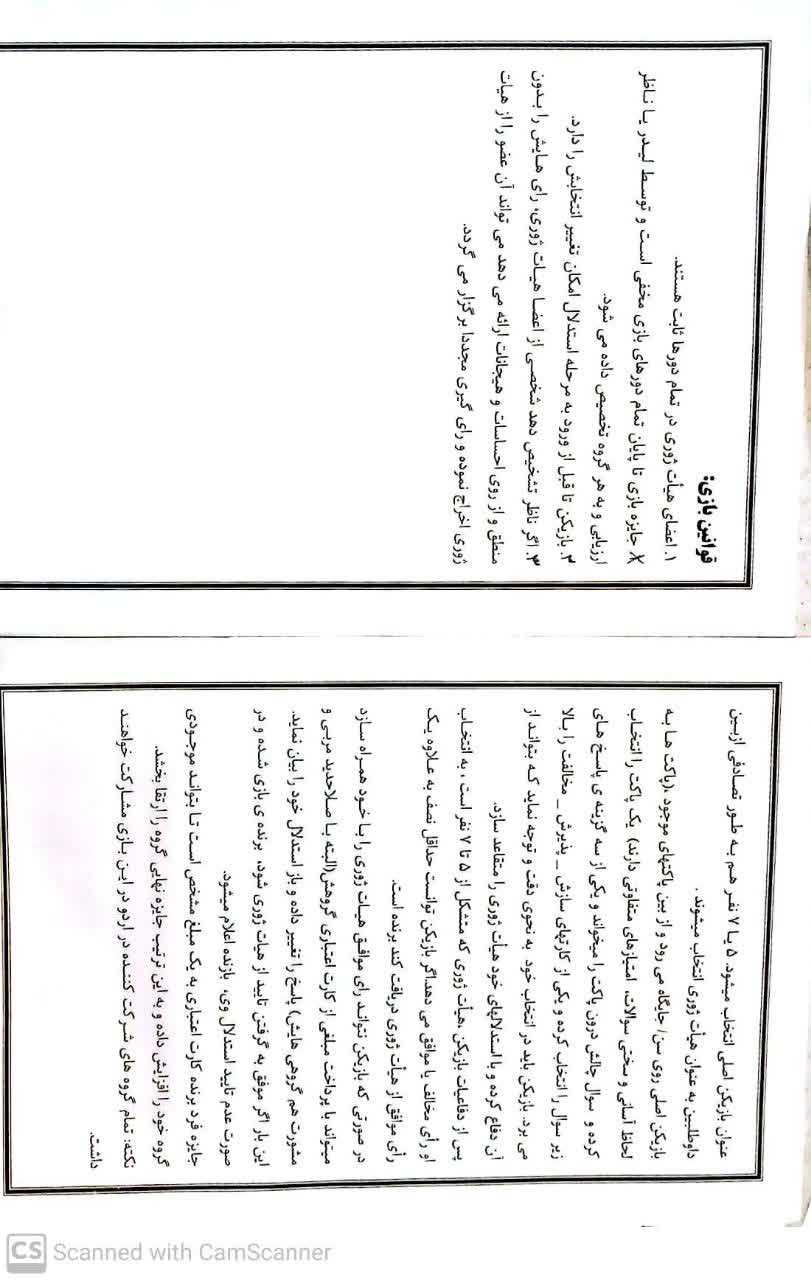 قوانین بازی:
۱. اعضای هیأت ژوری در تمام دورها ثابت هستند.
۲. جایزه بازی تا پایان تمام دورهای بازی مخفی است و توسط لیدر یا ناظر
ارزیابی و به هر گروه تخصیص داده می شود.
۳. بازیکن تا قبل از ورود به مرحله استدلال امکان تغییر انتخابش را دارد.
۳. اگر ناظر تشخیص دهد شخصی از اعضا هیات ژوری، رای هایش را بدون
منطق و از روی احساسات و هیجانات ارائه می دهد می تواند آن عضو را از هیات
ژوری اخراج نموده و رای گیری مجددا برگزار می گردد.
عنوان بازیکن اصلی انتخاب میشود. ۵ یا ۷ نفر هم به طور تصادفی ازبین
داوطلبین به عنوان هیأت ژوری انتخاب میشوند .
بازیکن اصلی روی سن/ جایگاه می رود و از بین پاکتهای موجود ،(پاکت ها به
لحاظ آسانی و سختی سوالات، امتیازهای متفاوتی دارند) یک پاکت را انتخاب
کرده و سوال چالش درون پاکت را میخواند و یکی از سه گزینه ی پاسخ های
زیر سوال را انتخاب کرده و یکی از کارتهای سازش _ پذیرش _ مخالفت را بالا
می برد. بازیکن باید در انتخاب خود به نحوی دقت و توجه نماید که بتواند از
آن دفاع کرده و با استدلالهای خود هیأت ژوری را متقاعد سازد.
پس از دفاعیات بازیکن ،هیأت ژوری که متشکل از ۵ تا ۷ نفر است ، به انتخاب
او رأی مخالف یا موافق می دهد.اگر بازیکن توانست حداقل نصف به علاوه یک
رأی موافق از هیأت ژوری دریافت کند برنده است.
در صورتی که بازیکن نتواند رای موافق هیات ژوری را با خود همراه سازد
میتواند با پرداخت مبلغی از کارت اعتباری گروهش(البته با صلاحدید مربی و
مشورت هم گروهی هایش) پاسخ را تغییر داده و باز استدلال خود را بیان نماید.
این بار اگر موفق به گرفتن تایید از هیات ژوری شود، برنده ی بازی شده و در
صورت عدم تایید استدلال وی، بازنده اعلام میشود.
جایزه فرد برنده کارت اعتباری به یک مبلغ مشخص است تا بتواند موجودی
گروه خود را افزایش داده و به این ترتیب جایزه نهایی گروه را ارتقا بخشد.
نکته: تمام گروه های شرکت کننده در اردو در این بازی مشارکت خواهند
داشت.
CS Scanned with CamScanner